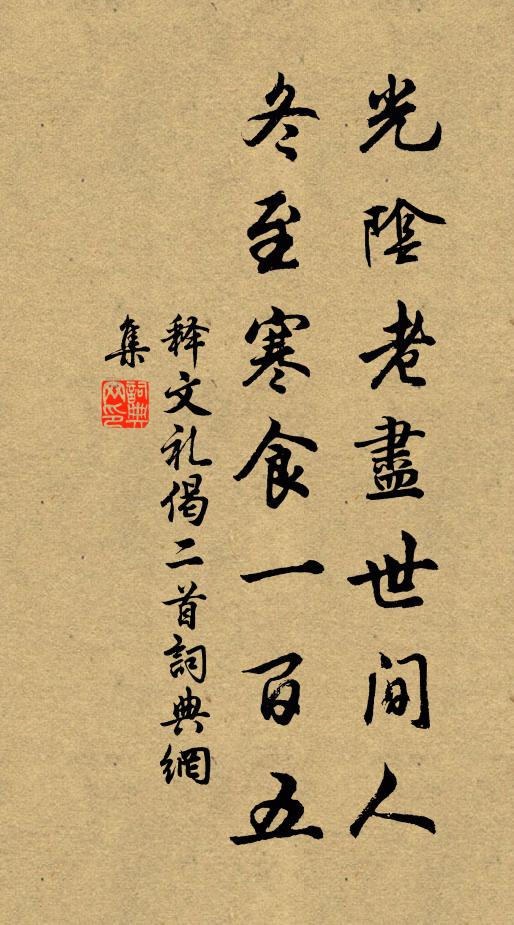 光陰老盡世间人
冬至寒食一百五
释文礼偈二首詞典網
集
詞典
网印